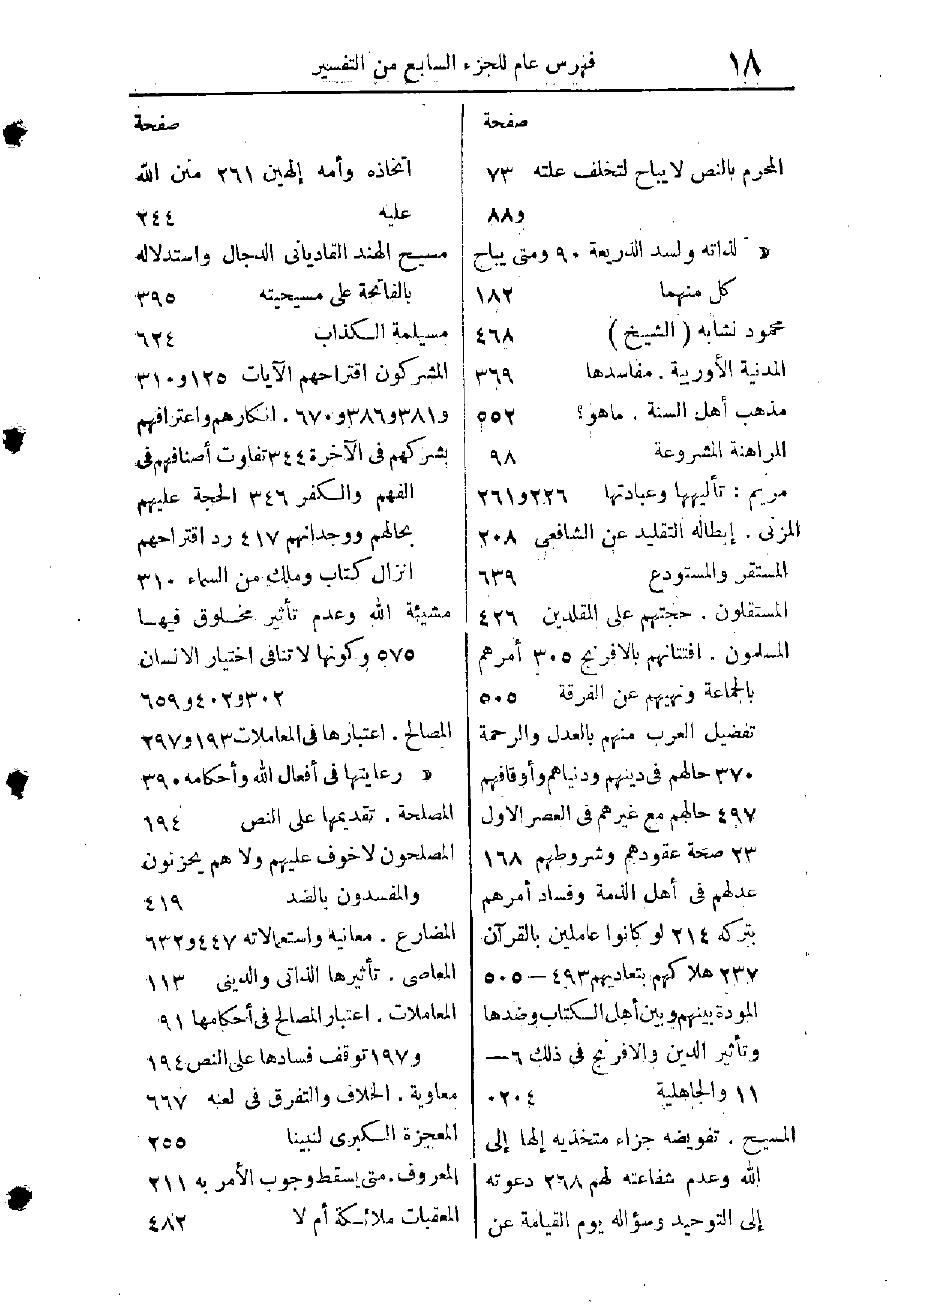 ١٨
فهرس عام للجزء السابع من التفسير
صفحة
المحرم بالنص لا يباح لتخلف علته ٧٣
و٨٨
« لذاته ولسد الذريعة ٩٠ ومتى يباح
كل منهما ١٨٢
محمود نشابه ( الشيخ ) ٤٦٨
المدنية الأوربية . مفاسدها ٣٦٩
مذهب أهل السنة . ماهو؟ ٥٥٢
المراهنة المشروعة ٩٨
مريم : تأليهها وعبادتها ٢٢٦و٢٦١
المزنى . إبطاله التقليد عن الشافعى ٢٠٨
المستقر والمستودع ٦٣٩
المستقلون . حجتهم على المقلدين ٤٢٦
المسلمون . افتتانهم بالافرنج ٣٠٥ أمرهم
بالجماعة ونهيهم عن الفرقة ٥٠٥
تفضيل العرب منهم بالعدل والرحمة
٣٧٠ حالهم فى دينهم ودنياهم وأوقافهم
٤٩٧ حالهم مع غيرهم فى العصر الاول
٢٣ صحة عقودهم وشروطهم ١٦٨
عدلهم فى أهل الذمة وفساد أمرهم
بتركه ٢١٤ لو كانوا عاملين بالقرآن
٢٣٧ هلاكهم بتعاديهم ٤٩٣ — ٥٠٥
المودة بينهم وبين أهل الكتاب وضدها
وتأثير الدين والافرنج فى ذلك ٦ —
١١ والجاهلية ٢٠٤.
المسيح . تفويضه جزاء متخذيه إلها إلى
الله وعدم شفاعته لهم ٢٦٨ دعوته
إلى التوحيد وسؤاله يوم القيامة عن
صفحة
اتخاذه وأمه إلهين ٢٦١ منن الله
عليه ٢٤٤
مسيح الهند القاديانى الدجال واستدلاله
بالفاتحة على مسيحيته ٣٩٥
مسيلمة الكذاب ٦٢٤
المشركون اقتراحهم الآيات ١٢٥و٣١٠
و٣٨١و٣٨٦و٦٧٠. انكارهم واعترافهم
بشركهم فى الآخرة ٣٤٤ تفاوت أصنافهم فى
الفهم والكفر ٣٤٦ الحجة عليهم
بحالهم ووجدانهم ٤١٧ رد اقتراحهم
انزال كتاب وملك من السماء ٣١٠
مشيئة الله وعدم تأثير مخلوق فيها
٥٧٥ وكونها لا تنافى اختيار الانسان
٣٠٢و٤٠٢و٦٥٩
المصالح . اعتبارها فى المعاملات ١٩٣و٢٩٧
« رعايتها فى أفعال الله وأحكامه ٣٩٠
المصلحة . تقديمها على النص ١٩٤
المصلحون لا خوف عليهم ولا هم يحزنون
والمفسدون بالضد ٤١٩
المضارع . معانيه واستعمالاته ٤٤٧و٦٣٢
المعاصى . تأثيرها الذاتى والدينى ١١٣
المعاملات . اعتبار المصالح فى أحكامها ٩١
و١٩٧ توقف فسادها على النص ١٩٤
معاوية . الخلاف والتفرق فى لعنه ٦٦٧
المعجزة الكبرى لنبينا ٢٥٥
المعروف . متى يسقط وجوب الأمر به ٢١١
المعقبات ملائكة أم لا ٤٨٢